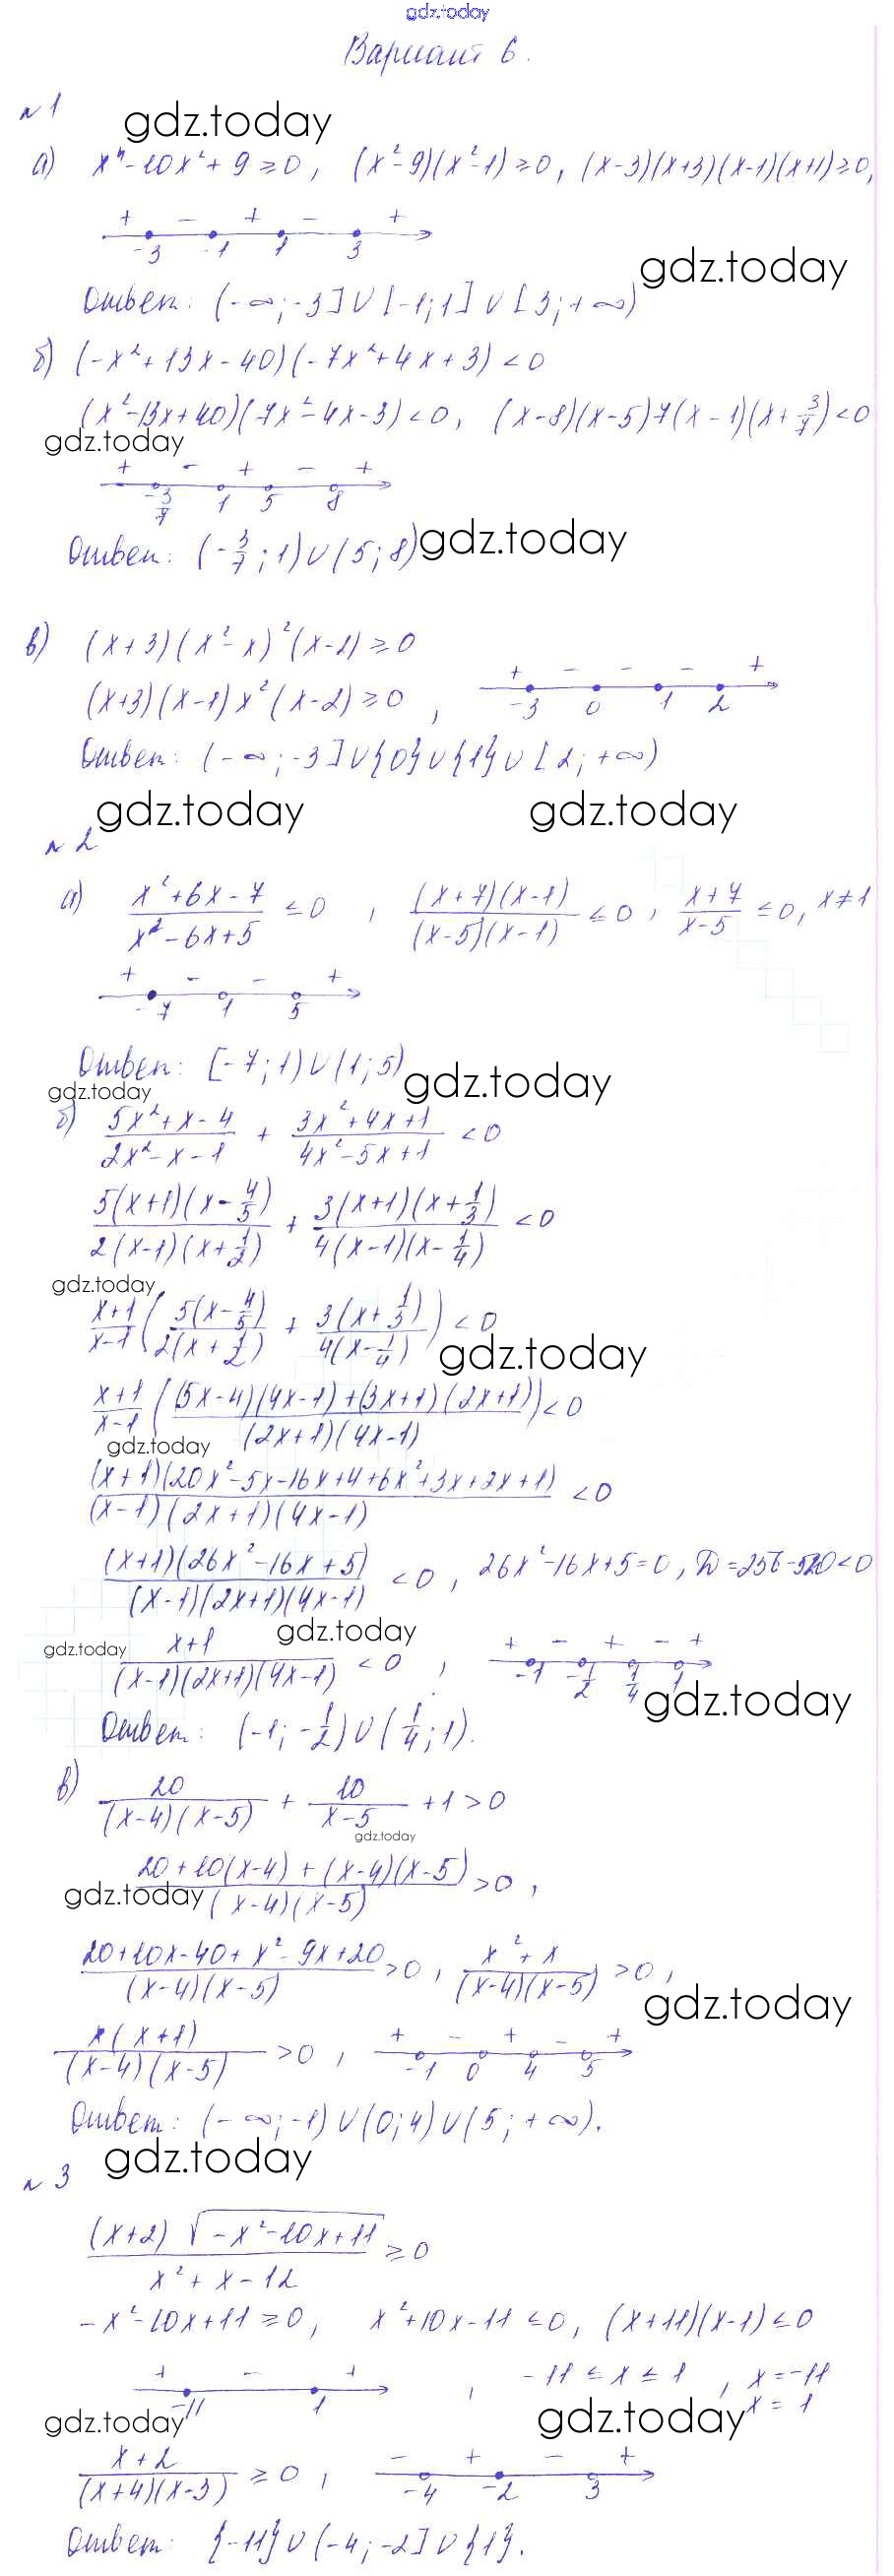 gdz.today
Вариант 6.
№1 gdz.today
а) x⁴-10x²+9≥0, (x²-9)(x²-1)≥0, (x-3)(x+3)(x-1)(x+1)≥0,
+ - + - +
-3 -1 1 3
gdz.today
Ответ: (-∞;-3]∪[-1;1]∪[3;+∞)
б) (-x²+13x-40)(-7x²+4x+3)<0
(x²-13x+40)(7x²-4x-3)<0, (x-8)(x-5)7(x-1)(x+3/7)<0
gdz.today
+ - + - +
-3/7 1 5 8
Ответ: (-3/7;1)∪(5;8) gdz.today
в) (x+3)(x²-x)²(x-2)≥0
+ - - - +
(x+3)(x-1)x²(x-2)≥0, -3 0 1 2
Ответ: (-∞;-3]∪{0}∪{1}∪[2;+∞)
gdz.today gdz.today
№2
а) (x²+6x-7)/(x²-6x+5) ≤0, ((x+7)(x-1))/((x-5)(x-1)) ≤0, (x+7)/(x-5) ≤0, x≠1
+ - - +
-7 1 5
Ответ: [-7;1)∪(1;5) gdz.today
gdz.today
б) (5x²+x-4)/(2x²-x-1) + (3x²+4x+1)/(4x²-5x+1) <0
(5(x+1)(x-4/5))/(2(x-1)(x+1/2)) + (3(x+1)(x+1/3))/(4(x-1)(x-1/4)) <0
gdz.today
(x+1)/(x-1) ((5(x-4/5))/(2(x+1/2)) + (3(x+1/3))/(4(x-1/4))) <0
gdz.today
(x+1)/(x-1) (((5x-4)(4x-1)+(3x+1)(2x+1))/((2x+1)(4x-1)))<0
gdz.today
((x+1)(20x²-5x-16x+4+6x²+3x+2x+1))/((x-1)(2x+1)(4x-1)) <0
((x+1)(26x²-16x+5))/((x-1)(2x+1)(4x-1)) <0, 26x²-16x+5=0, D=256-520<0
gdz.today gdz.today
(x+1)/((x-1)(2x+1)(4x-1)) <0, + - + - +
-1 -1/2 1/4 1
gdz.today
Ответ: (-1;-1/2)∪(1/4;1).
в) 20/((x-4)(x-5)) + 10/(x-5) +1>0
gdz.today
(20+10(x-4)+(x-4)(x-5))/((x-4)(x-5)) >0,
gdz.today
(20+10x-40+x²-9x+20)/((x-4)(x-5)) >0, (x²+x)/((x-4)(x-5)) >0,
gdz.today
(x(x+1))/((x-4)(x-5)) >0, + - + - +
-1 0 4 5
Ответ: (-∞;-1)∪(0;4)∪(5;+∞).
№3 gdz.today
((x+2)√(-x²-10x+11))/(x²+x-12) ≥0
-x²-10x+11≥0, x²+10x-11≤0, (x+11)(x-1)≤0
+ - +
-11 1
, -11≤x≤1, x=-11
x=1
gdz.today gdz.today
(x+2)/((x+4)(x-3)) ≥0, - + - +
-4 -2 3
Ответ: {-11}∪(-4;-2]∪{1}.